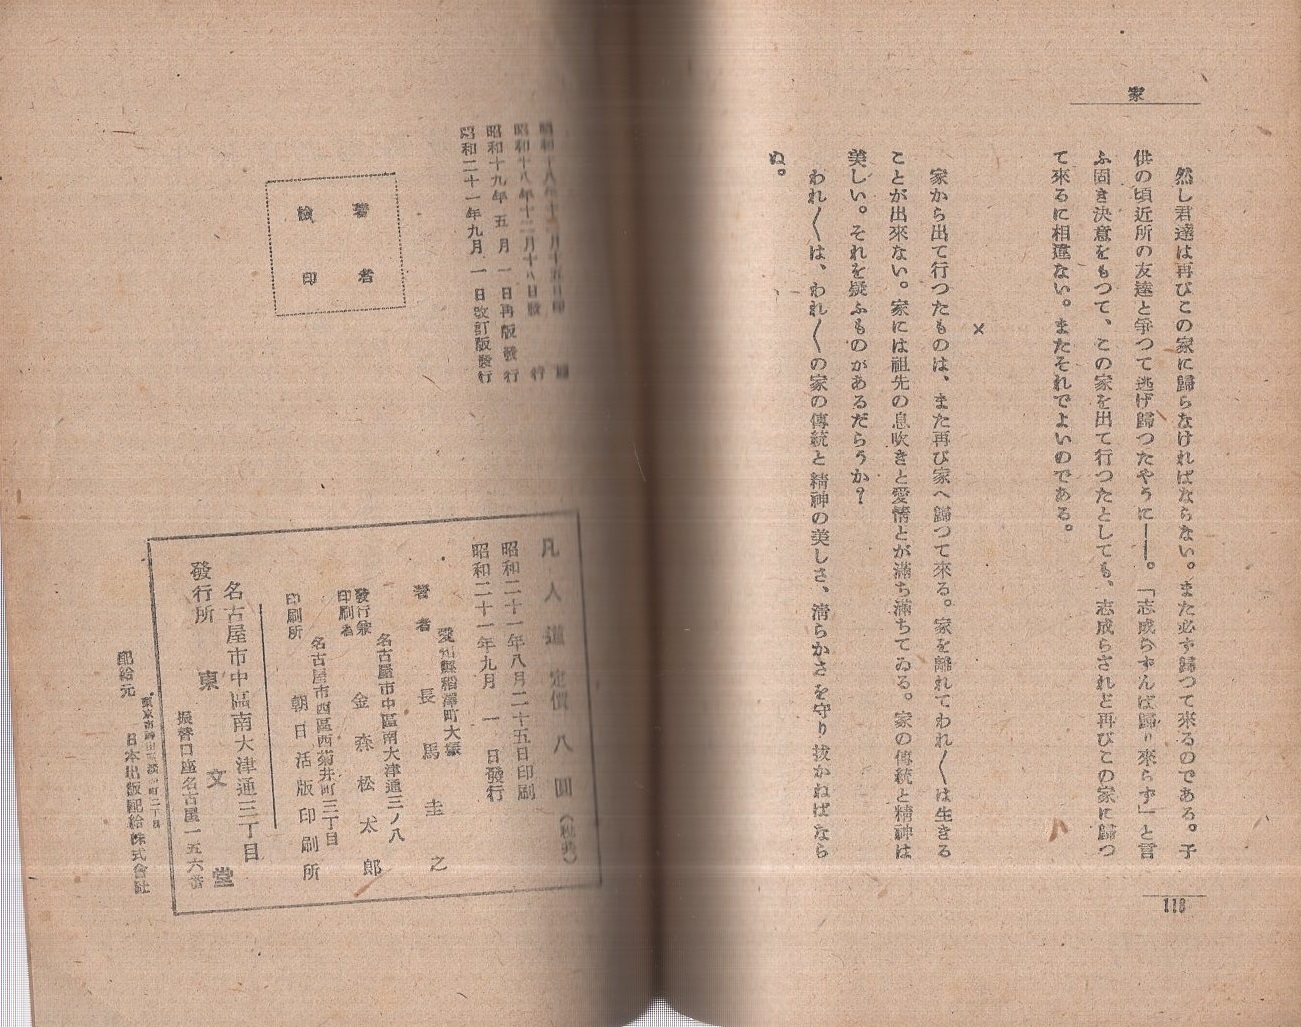 家
然し君達は再びこの家に歸らなければならない。また必ず歸つて來るのである。子
供の頃近所の友達と爭つて逃げ歸つたやうに――。「志成らずんば歸り來らず」と言
ふ固き決意をもつて、この家を出て行つたとしても、志成らされど再びこの家に歸つ
て來るに相違ない。またそれでよいのである。
×
家から出て行つたものは、また再び家へ歸つて來る。家を離れてわれ〳〵は生きる
ことが出來ない。家には祖先の息吹きと愛情とが滿ち滿ちてゐる。家の傳統と精神は
美しい。それを疑ふものがあるだらうか?
われ〳〵は、われ〳〵の家の傳統と精神の美しさ、淸らかさを守り拔かねばなら
ぬ。
118
昭和十八年十二月十五日印刷
昭和十八年十二月十八日發行
昭和十九年五月一日再版發行
昭和二十一年九月一日改訂版發行
著者
檢印
凡人道 定價八圓
昭和二十一年八月二十五日印刷
昭和二十一年九月一日發行
愛知縣稻澤町大塚
著者 長馬圭之
名古屋市中區南大津通三ノ八
發行兼
印刷者 金森松太郎
名古屋市西區西菊井町三丁目
印刷所 朝日活版印刷所
名古屋市中區南大津通三丁目
發行所 東文堂
振替口座名古屋一五六番
配給元 日本出版配給株式會社